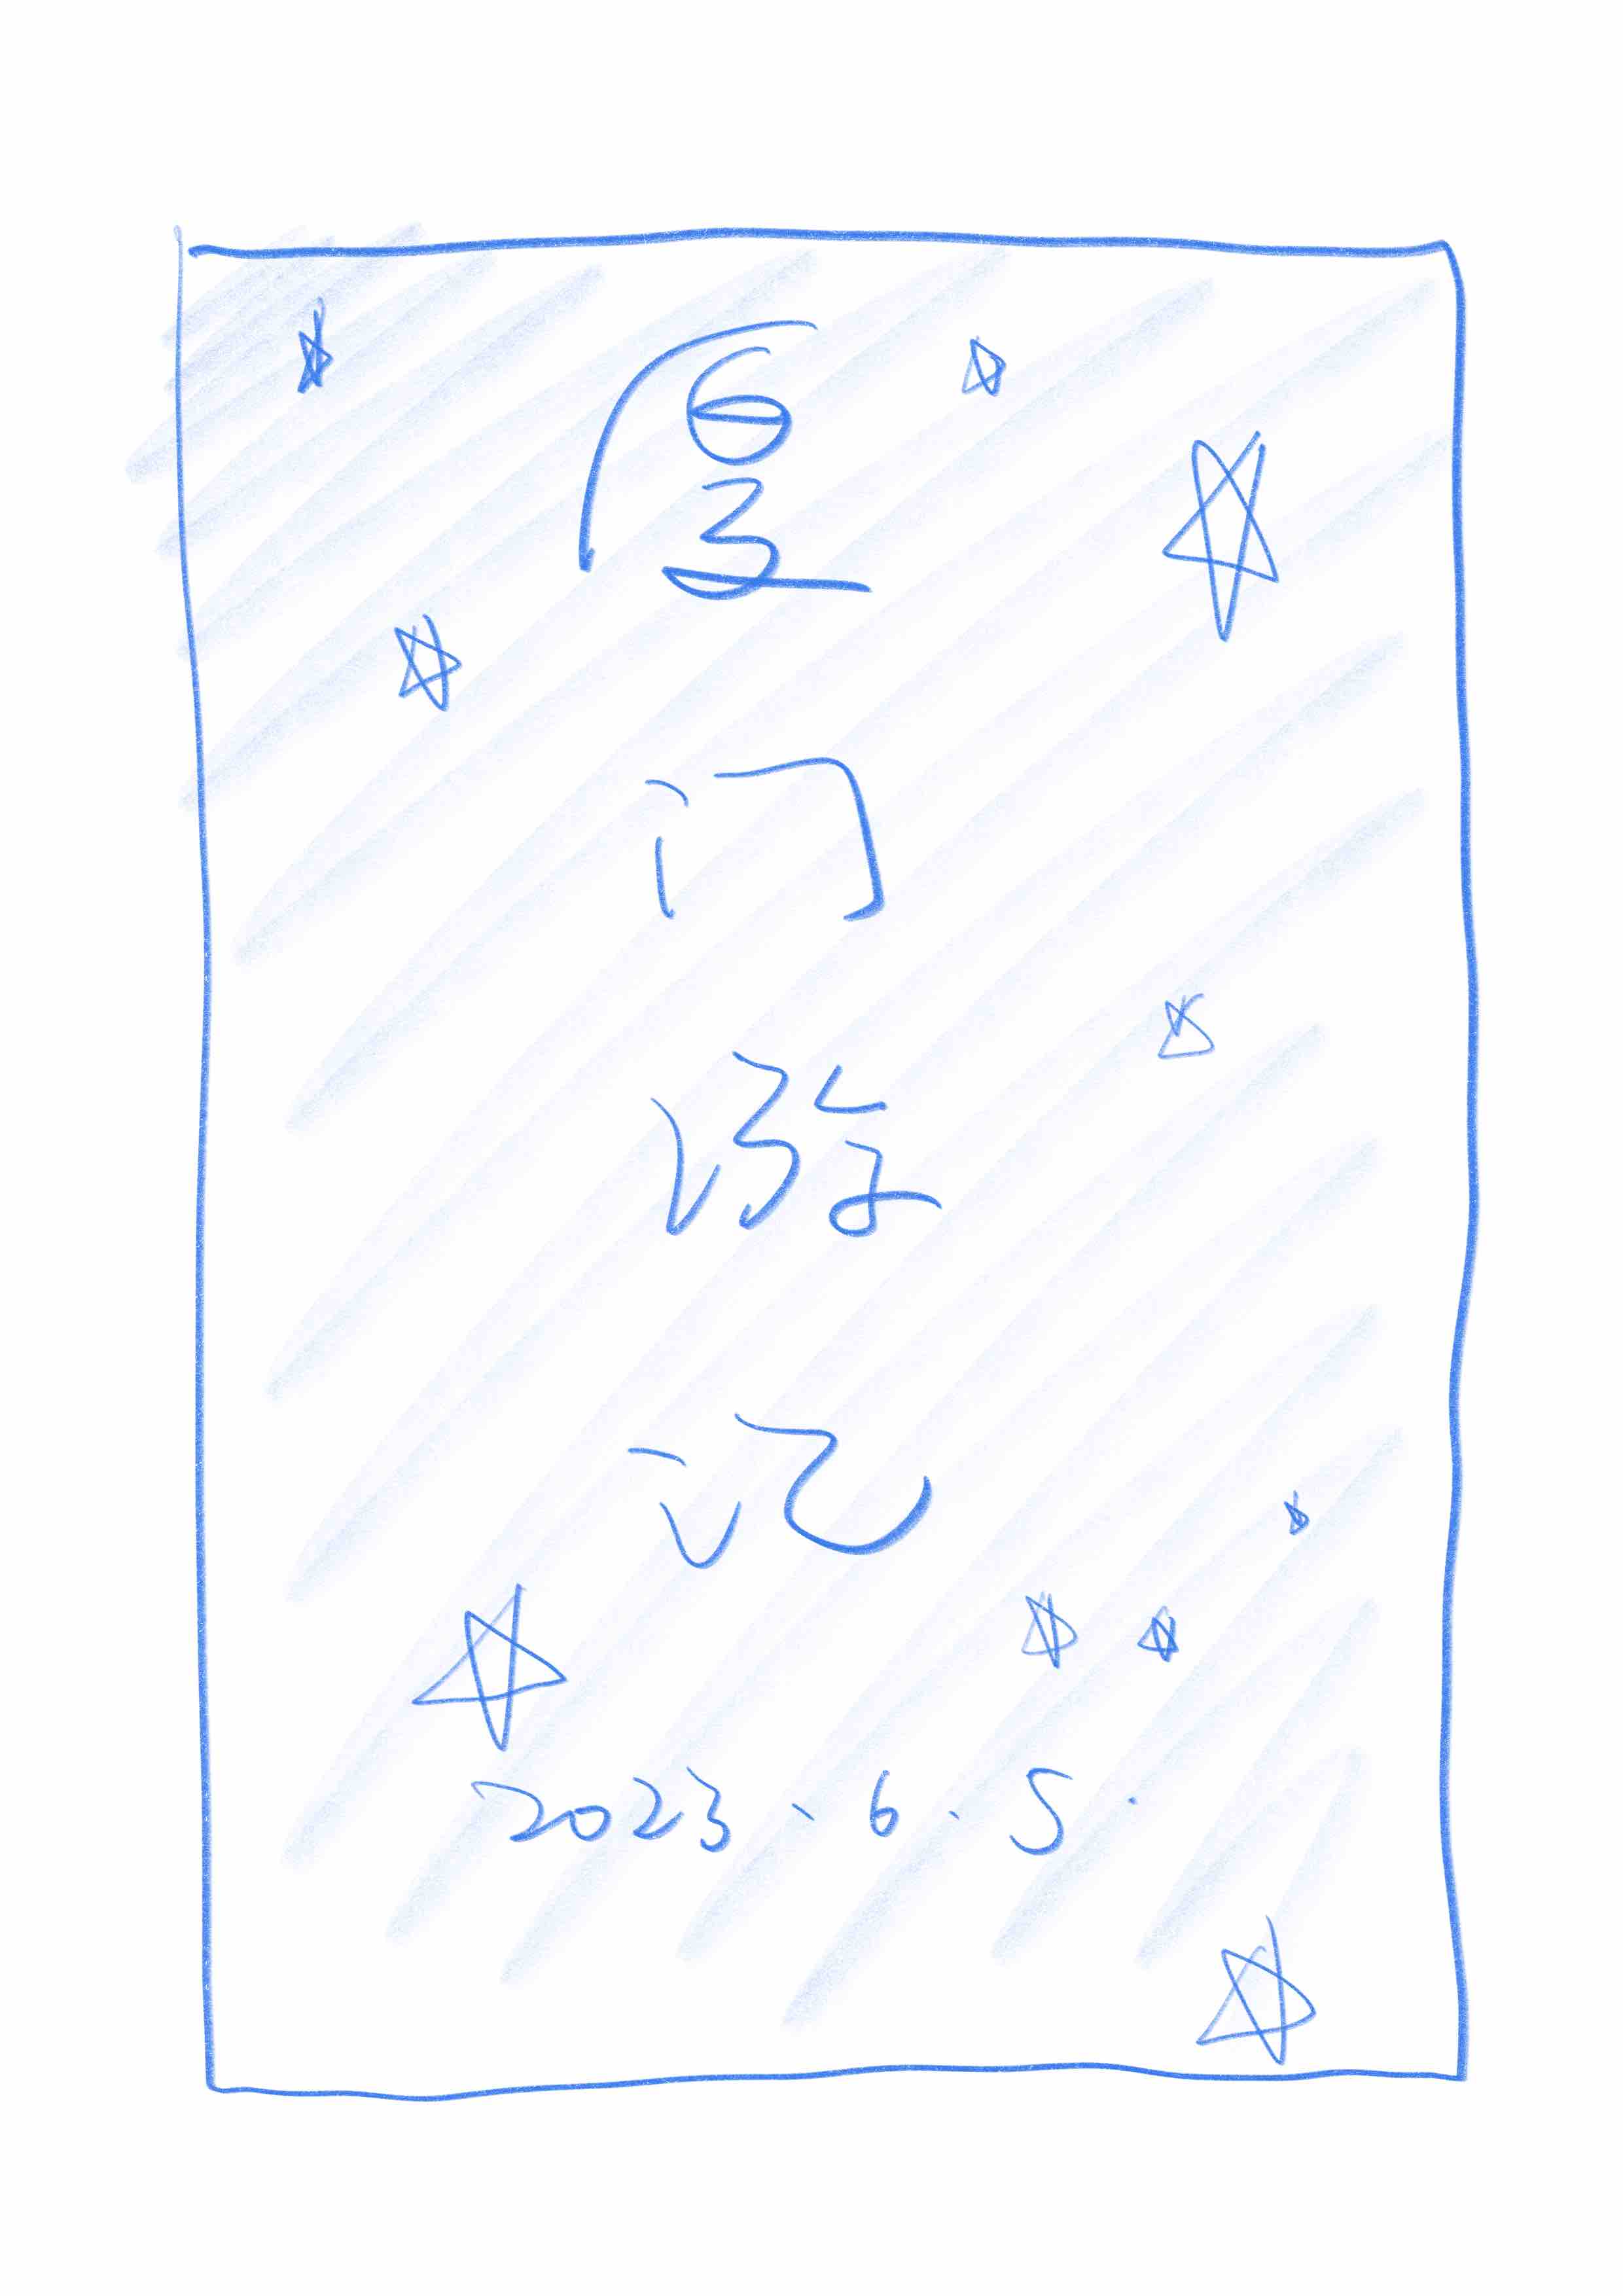 厦
门
游
记
2023、6.5.